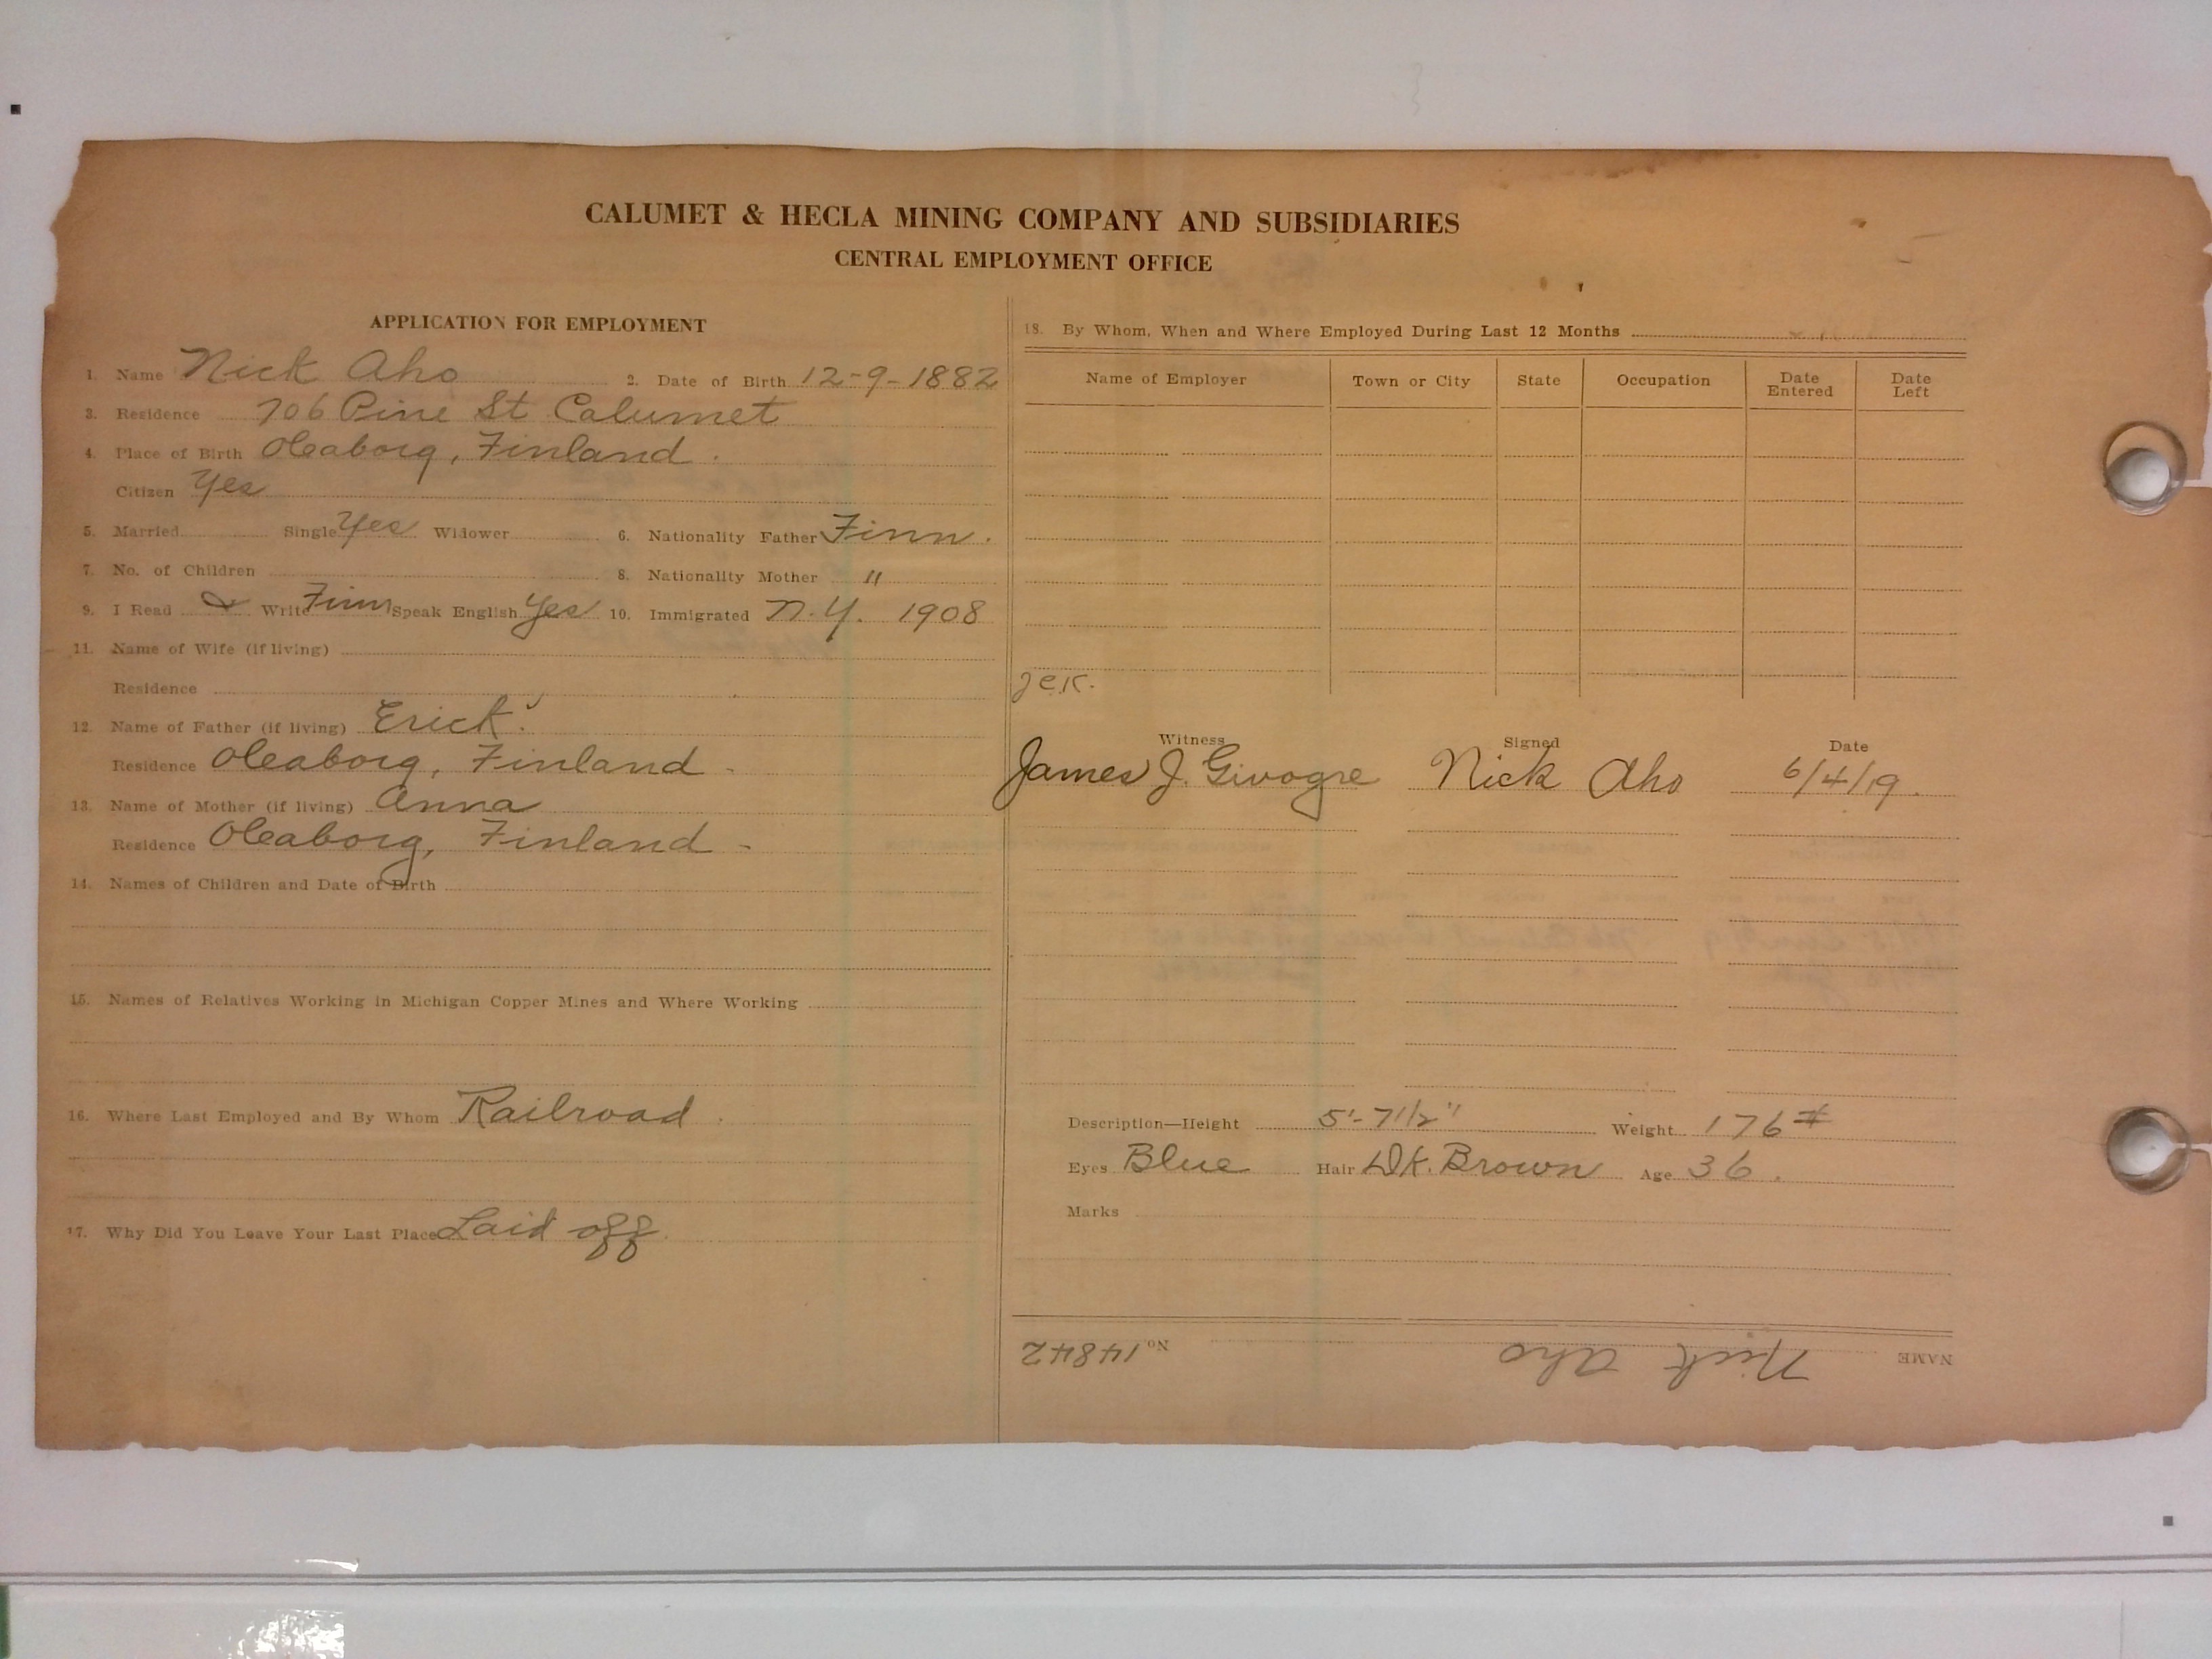 CALUMET & HECLA MINING COMPANY AND SUBSIDIARIES
CENTRAL EMPLOYMENT OFFICE
APPLICATION FOR EMPLOYMENT
1. Name Nick Aho 2. Date of Birth 12-9-1882
3. Residence 706 Pine St Calumet
4. Place of Birth Oleaborg, Finland.
Citizen Yes
5. Married Single Yes Widower 6. Nationality Father Finn.
7. No. of Children 8. Nationality Mother "
9. I Read & Write Finn Speak English Yes 10. Immigrated N.Y. 1908
11. Name of Wife (if living)
Residence
12. Name of Father (if living) Erick.
Residence Oleaborg, Finland -
13. Name of Mother (if living) Anna
Residence Oleaborg, Finland -
14. Names of Children and Date of Birth
15. Names of Relatives Working in Michigan Copper Mines and Where Working
16. Where Last Employed and By Whom Railroad.
17. Why Did You Leave Your Last Place Laid off.
18. By Whom, When and Where Employed During Last 12 Months
Name of Employer Town or City State Occupation Date Entered Date Left
Witness Signed Date
James J. Givogre Nick Aho 6/4/19.
Description—Height 5'-7 1/2" Weight 176 #
Eyes Blue Hair Dk. Brown Age 36.
Marks
NAME Nick Aho No. 14842